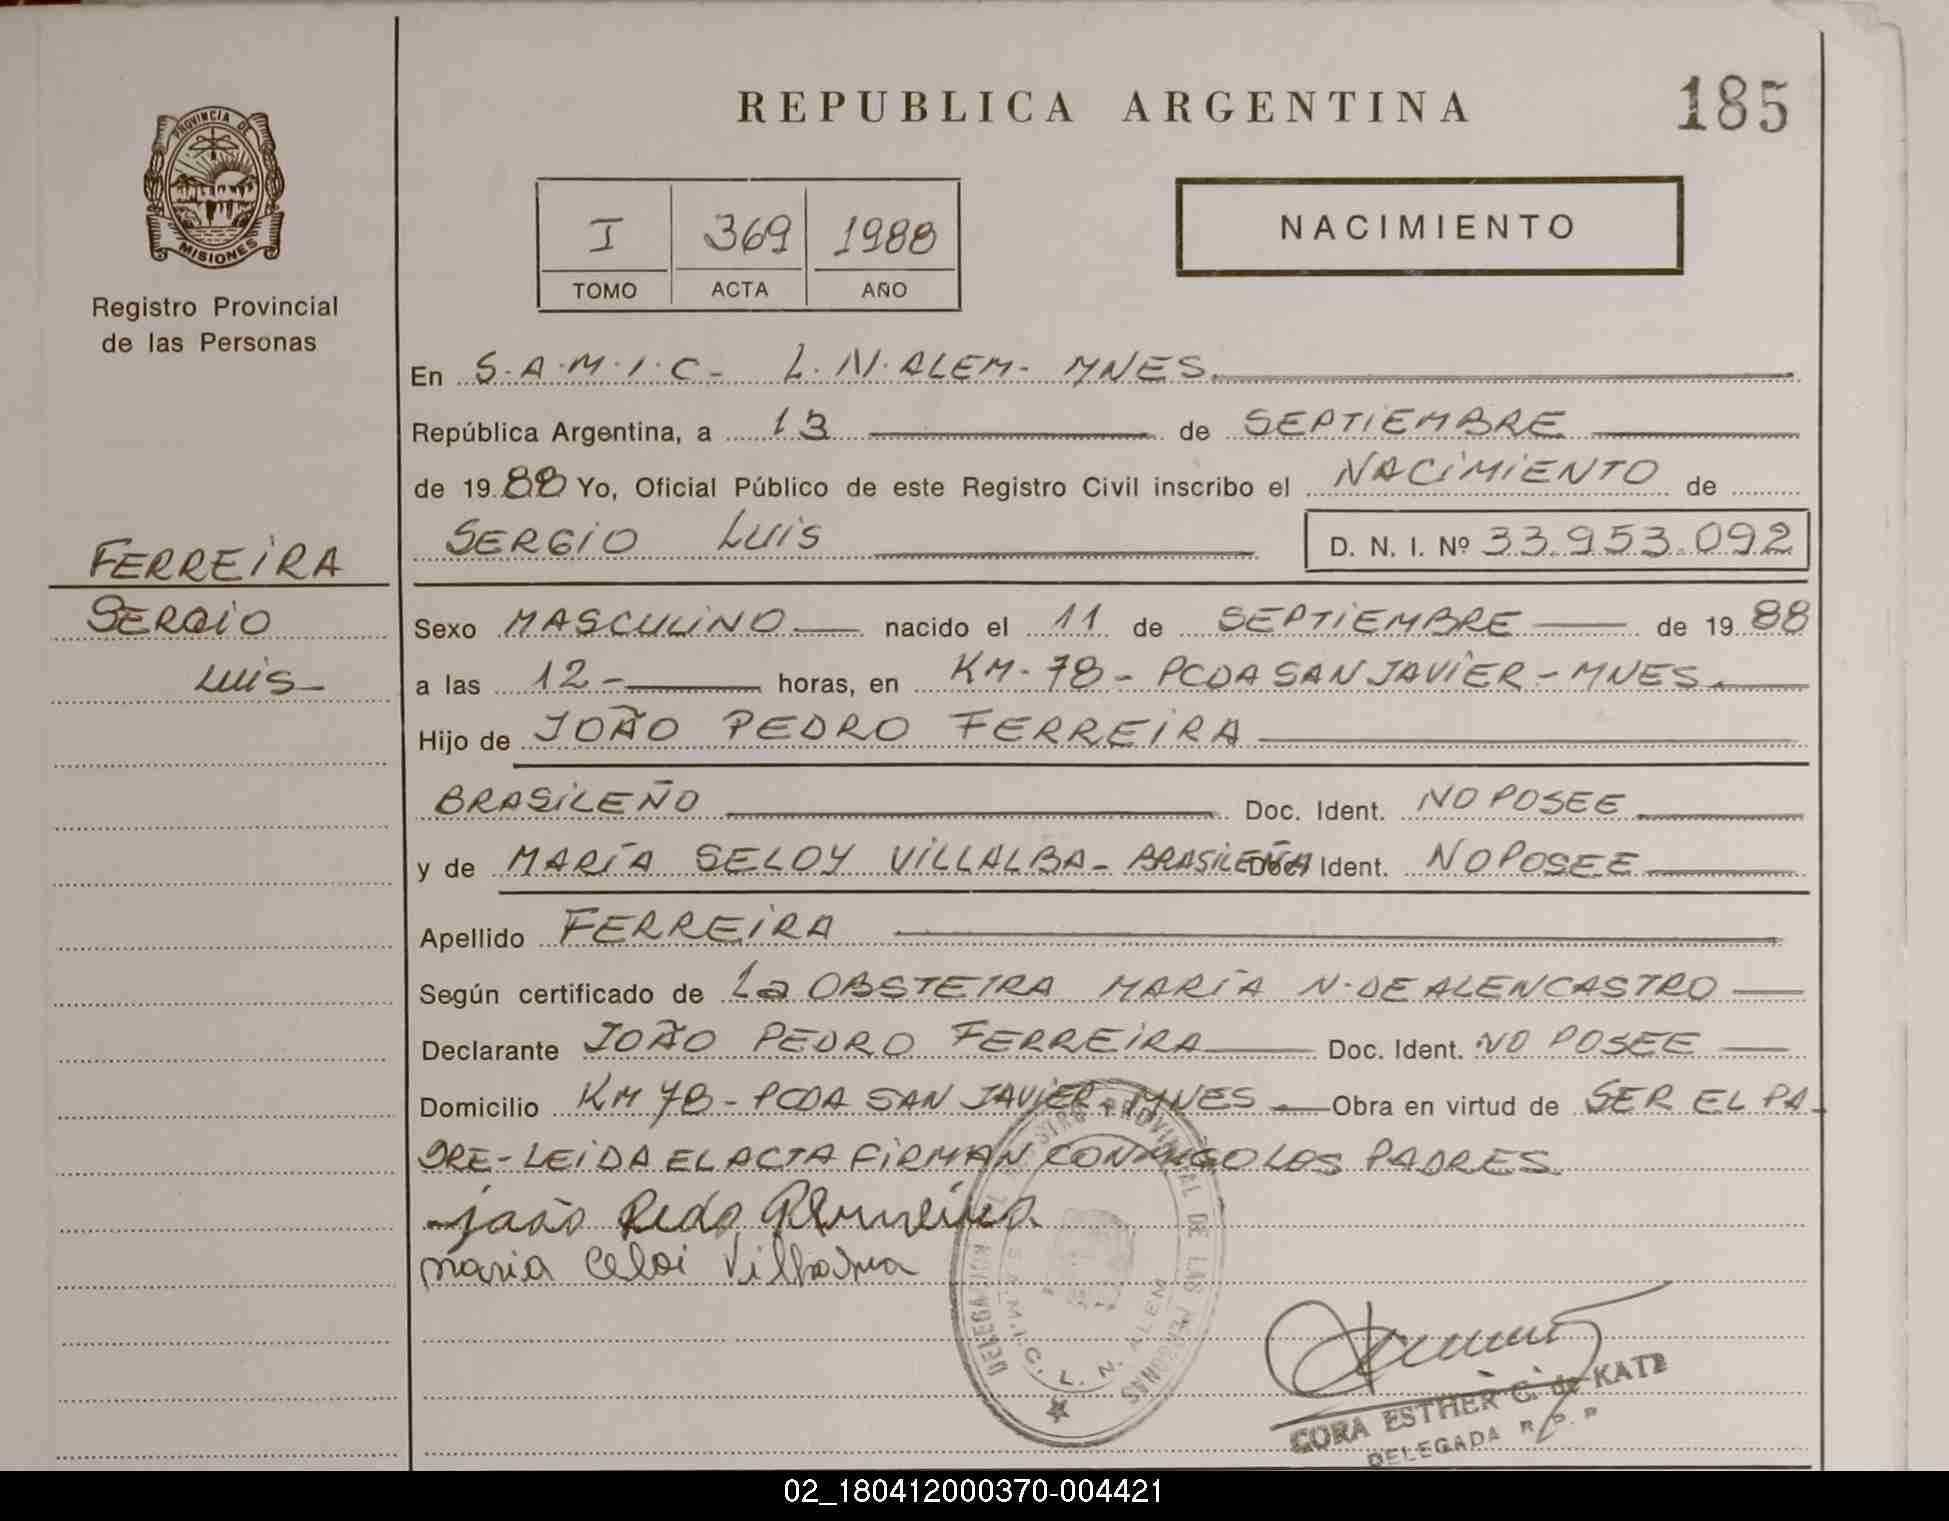 REPUBLICA ARGENTINA
185
PROVINCIA DE
MISIONES
Registro Provincial
de las Personas
I 369 1988
TOMO ACTA AÑO
NACIMIENTO
En S.A.M.I.C- L.N.ALEM- MNES
República Argentina, a 13 de SEPTIEMBRE
de 1988 Yo, Oficial Público de este Registro Civil inscribo el NACIMIENTO de
SERGIO LUIS D. N. I. Nº 33.953.092
FERREIRA
SERGIO
LUIS-
Sexo MASCULINO nacido el 11 de SEPTIEMBRE de 1988
a las 12- horas, en KM-78- PCDA SAN JAVIER-MNES.
Hijo de JOÃO PEDRO FERREIRA
BRASILEÑO Doc. Ident. NO POSEE
y de MARÍA SELOY VILLALBA- BRASILEÑA Doc. Ident. NO POSEE
Apellido FERREIRA
Según certificado de La OBSTETRA MARÍA N. DE ALENCASTRO
Declarante JOÃO PEDRO FERREIRA Doc. Ident. NO POSEE
Domicilio KM 78- PCDA SAN JAVIER- MNES Obra en virtud de SER EL PA-
DRE- LEIDA EL ACTA FIRMAN CONMIGO LOS PADRES
joão Pedro Ferreira
maria Celoi Villalva
REGISTRO PROVINCIAL DE LAS PERSONAS
S.A.M.I.C. L. N. ALEM
CORA ESTHER G. de KATZ
DELEGADA R. P. P
02_180412000370-004421